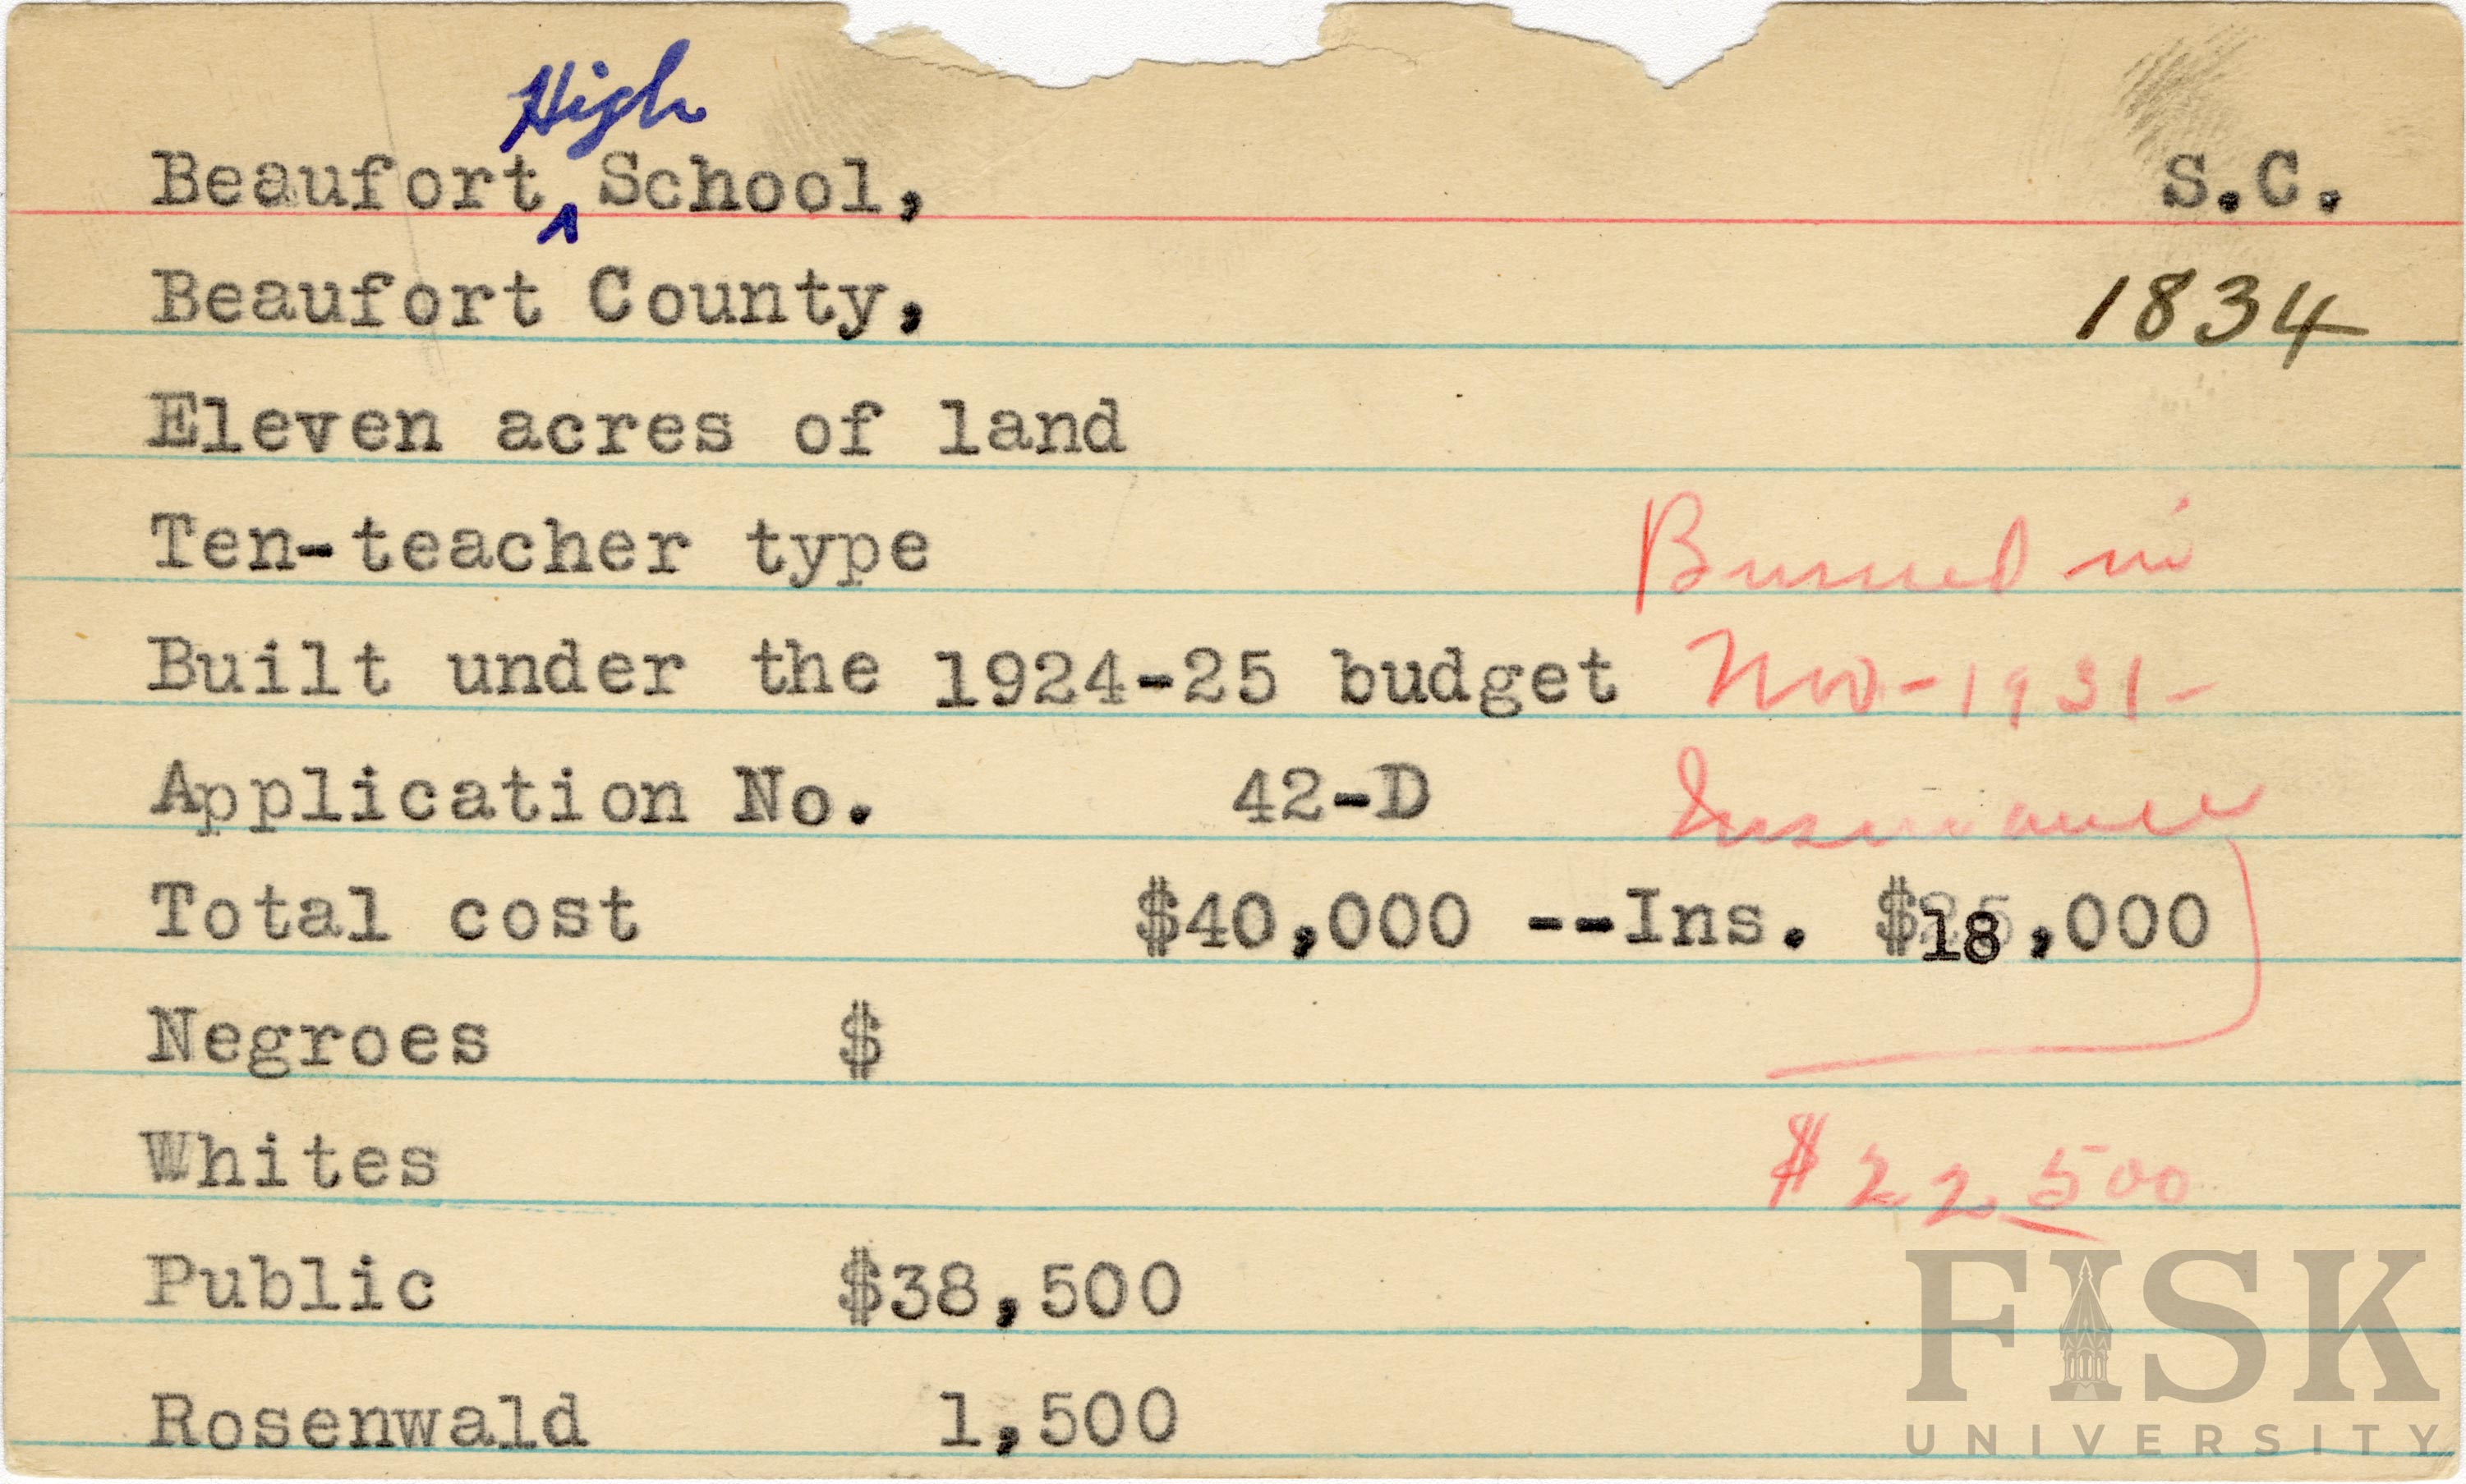 High
Beaufort ^ School, S.C.
Beaufort County, 1834
Eleven acres of land
Ten-teacher type Burned in
Built under the 1924-25 budget Nov-1931-
Application No. 42-D Insurance
Total cost $40,000 --Ins. $18,000
Negroes $
Whites $22500
Public $38,500
Rosenwald 1,500
FISK
UNIVERSITY